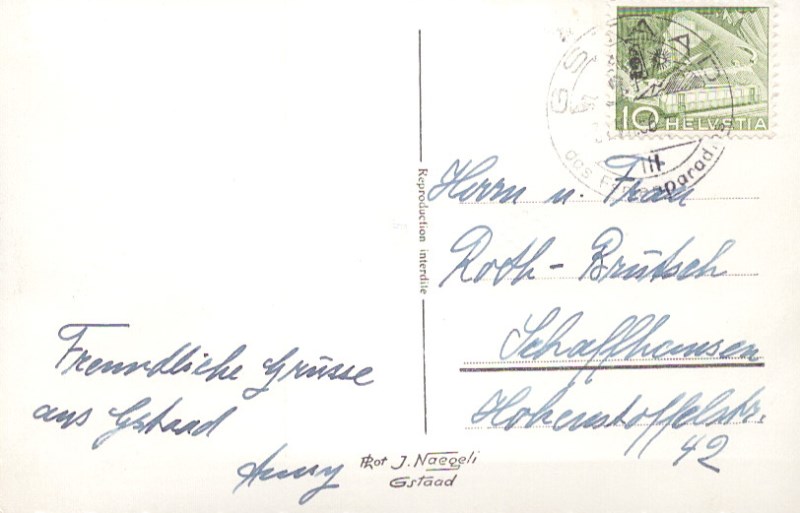 Freundliche Grüsse
aus Gstaad
Phot J. Naegeli
Gstaad
Reproduction interdite
10 HELVETIA
GSTAAD
das Ferienparadies
III
Herrn u. Frau
Roth-Brütsch
Schaffhausen
Hohenstoffelstr.
42